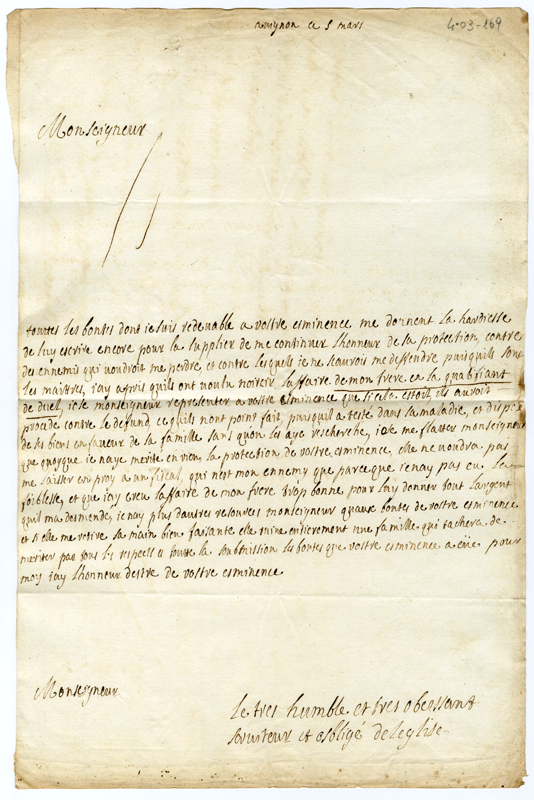 avignon ce 5 mars
4-03-169
Monseigneur
touttes les bontes dont ie suis redeuable a vostre esminence me donnent la hardiesse
de luy escrire encore pour la supplier de me continuer lhonneur de la protection contre
des ennemis qui voudroit me perdre et contre lesquels ie ne scaurois me deffendre puisquils sont
les maistres, iay apris quils ont voulu noircir laffaire de mon frere en la qualifiant
de duel, iose monseigneur representer a vostre esminence que si cela estoit ils auroit
procede contre le defund ce quils nont point fait, puisquil a teste dans sa maladie, et dispose
de ses biens en faueur de sa famille sans quon les aye rescherche, iose me flatter monseigneur
que quoyque ie naye merite en rien la protection de vostre esminence, elle ne voudra pas
me laisser en proy a un fiscal, qui nest mon ennemy que parceque ie nay pas eu la
foiblesse, et que iay creu laffaire de mon frere trop bonne pour luy donner tout largent
quil ma desmende, ie nay plus dautres resources monseigneur quaux bontes de vostre esminence
et si elle me retire sa main bien faisante elle ruine entierement une famille qui tachera de
meriter par tous les respects et toutte la soubmission les bontes que vostre esminence a eüe pour
moy iay lhonneur destre de vostre esminence
Monseigneur
le tres humble et tres obeissant
seruiteur et obligé deleglise